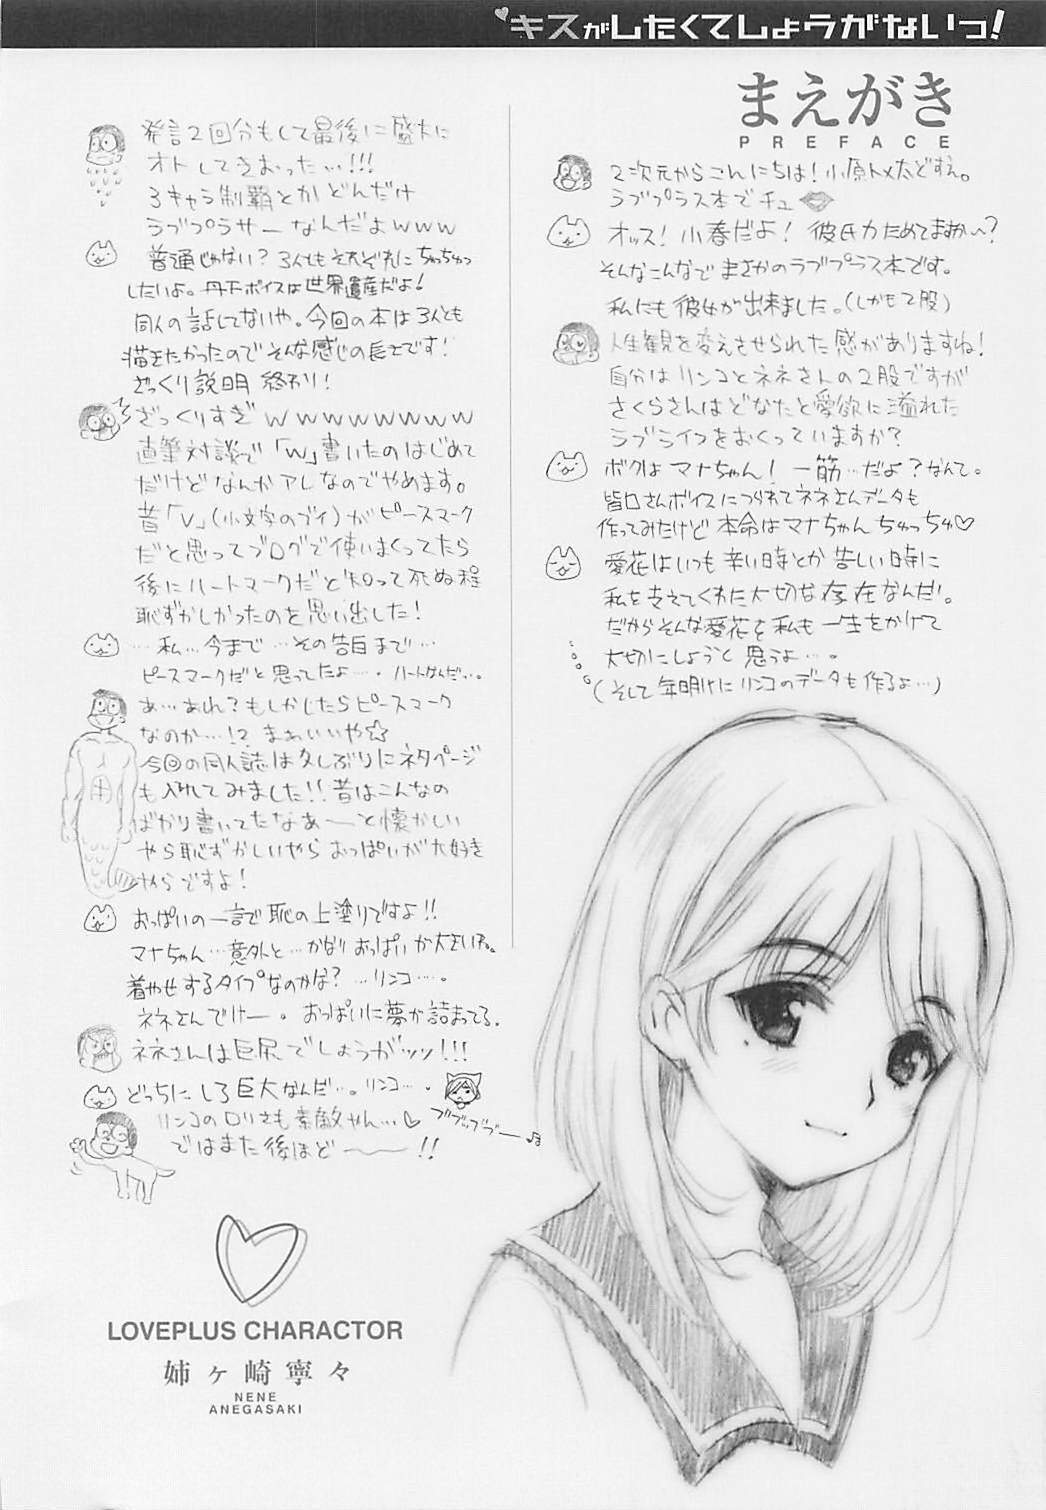 キスがしたくてしょうがないっ!
まえがき
PREFACE
2次元からこんにちは!小原トメ太どすえ。
ラブプラス本でチュ
オッス!小春だよ!彼氏力ためてますか〜?
そんなこんなでまさかのラブプラス本です。
私にも彼女が出来ました。(しかも2股)
人生観を変えさせられた感がありますね!
自分はリンコとネネさんの2股ですが
さくらさんはどなたと愛欲に溢れた
ラブライフをおくっていますか?
ボクはマナちゃん!一筋…だよ?なんて。
皆口さんボイスにつられてネネさんデータも
作ってみたけど本命はマナちゃんちゅっちゅ♡
愛花はいつも辛い時とか苦しい時に
私を支えてくれた大切な存在なんだ。
だからそんな愛花を私も一生をかけて
大切にしようと思うよ…。
(そして年明けにリンコのデータも作るよ…)
発言2回分もして最後に盛大に
オトしてきおった…!!!
3キャラ制覇とかどんだけ
ラブプラサーなんだよwww
普通じゃない?3人ともそれぞれにちゅっちゅっ
したいよ。丹下ボイスは世界遺産だよ!
同人の話してないや。今回の本は3人とも
描きたかったのでそんな感じの長さです!
ざっくり説明終わり!
ざっくりすぎwwwwwwww
直筆対談で「w」書いたのはじめて
だけどなんかアレなのでやめます。
昔「v」(小文字のブイ)がピースマーク
だと思ってブログで使いまくってたら
後にハートマークだと知って死ぬ程
恥ずかしかったのを思い出した!
…私…今まで…その告白まで…
ピースマークだと思ってたよ…。ハートなんだ…。
あ…あれ?もしかしたらピースマーク
なのか…!?まぁいいや☆
今回の同人誌は久しぶりにネタページ
も入れてみました!!昔はこんなの
ばかり書いてたなあ〜と懐かしい
やら恥ずかしいやらおっぱいが大好き
やらですよ!
おっぱいの一言で恥の上塗りですよ!!
マナちゃん…意外と…かなりおっぱいが大きい子。
着やせするタイプなのかな?…リンコ…。
ネネさんでけー。おっぱいに夢が詰まってる。
ネネさんは巨尻でしょうがッッ!!!
どっちにしろ巨大なんだ…。リンコ…。
リンコのロリさも素敵やん…♡
ブブッブブー♪
ではまた後ほど〜!!
LOVEPLUS CHARACTOR
姉ヶ崎寧々
NENE
ANEGASAKI